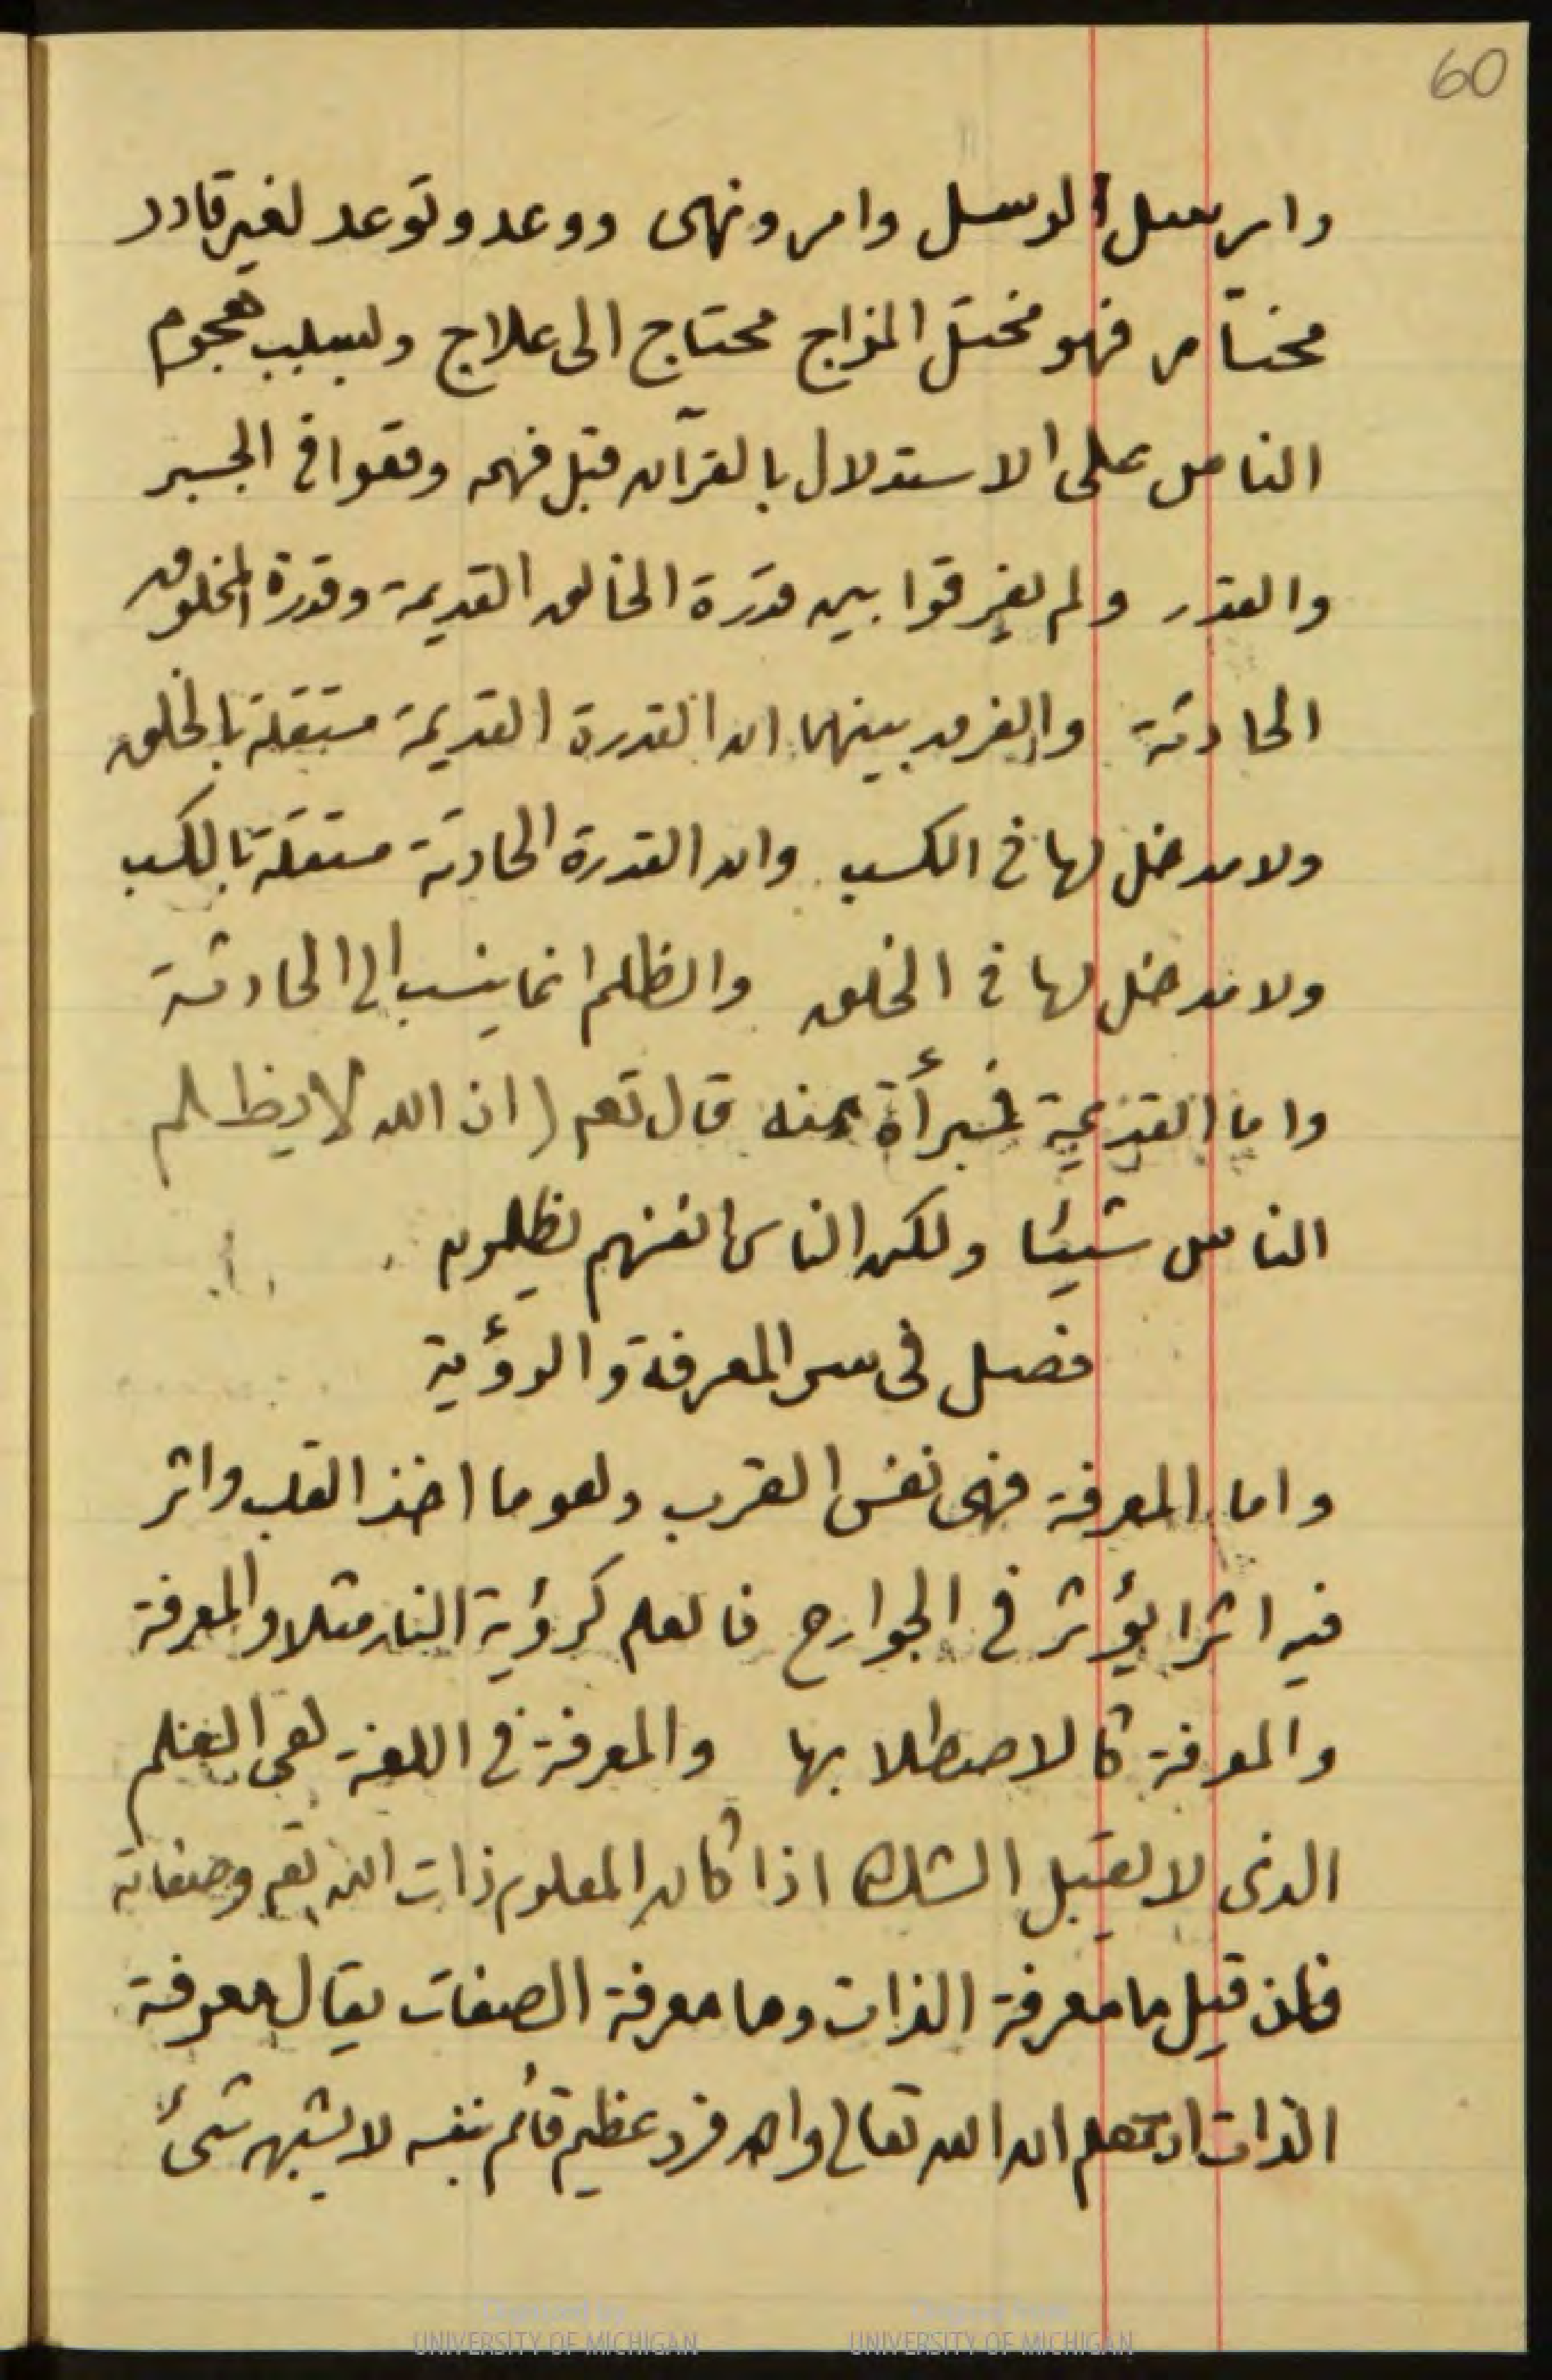 60
وارسل الرسل وامر ونهى ووعد وتوعد لغير قادر
مختار فهو مختل المزاج محتاج الى علاج ولسبب هجوم
الناس على الاستدلال بالقرآن قبل فهمه وقعوا في الجبر
والقدر ولم يفرقوا بين قدرة الخالق القديمة وقدرة المخلوق
الحادثة والفرق بينهما ان القدرة القديمة مستقلة بالخلق
ولا مدخل لها في الكسب وان القدرة الحادثة مستقلة بالكسب
ولا مدخل لها في الخلق والظلم انما ينسب الى الحادثة
واما القديمة فمبرأة عنه قال تعم (ان الله لا يظلم
الناس شيئا ولكن الناس انفسهم يظلمون
فصل في سر المعرفة والرؤية
واما المعرفة فهى نفس القرب وهو ما اخذ القلب واثر
فيه اثرا يؤثر في الجوارح فالعلم كرؤية النار مثلا والمعرفة
والمعرفة كالاصطلا بها والمعرفة في اللغة هى العلم
الذى لا يقبل الشك اذا كان المعلوم ذات الله تعم وصفاته
فان قيل ما معرفة الذات وما معرفة الصفات يقال معرفة
الذات ان تعلم ان الله تعالى واحد فرد عظيم قائم بنفسه لا يشبهه شئ
Digitized by
UNIVERSITY OF MICHIGAN
Original from
UNIVERSITY OF MICHIGAN